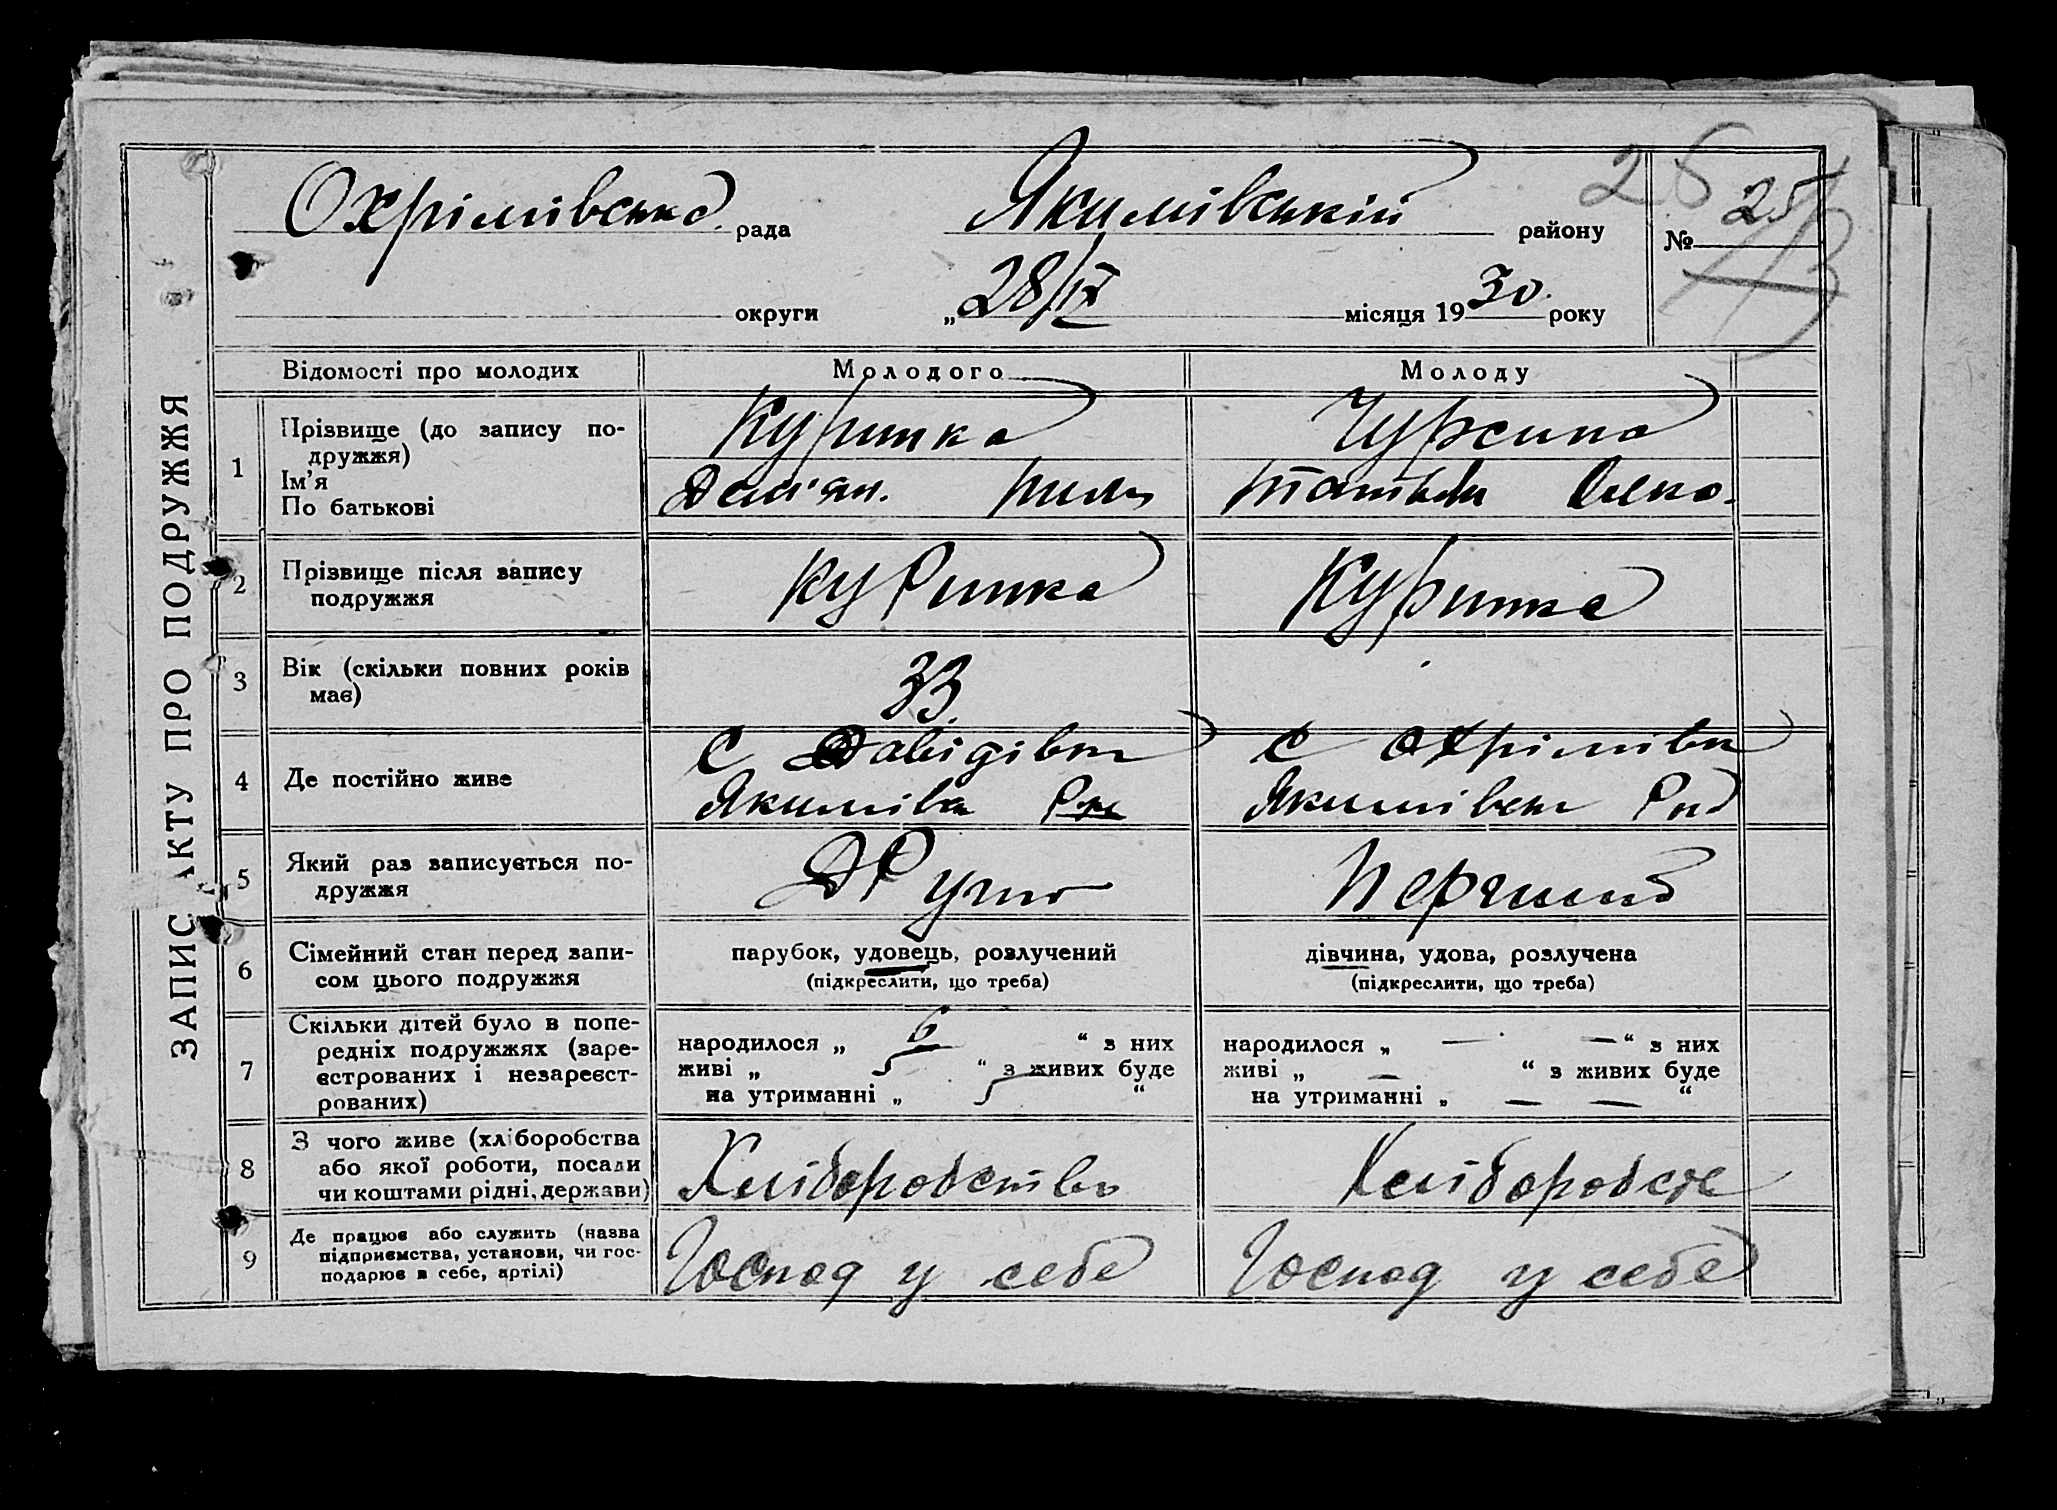 ЗАПИС АКТУ ПРО ПОДРУЖЖЯ
Охрімівська рада Якимівський району № 25
округи „28/IX місяця 1930 року
Відомості про молодих Молодого Молоду
1 Прізвище (до запису по-
дружжя)
Ім'я
По батькові
Куришка Чурсина
Даміян. Пил. Татьян Олекс.
2 Прізвище після запису
подружжя
Куришка Куришка
3 Вік (скільки повних років
має)
33
4 Де постійно живе
с Давідівки с Охрімівки
Якимівськ Рну Якимівськ Рну
5 Який раз записується по-
дружжя
Друго Перший
6 Сімейний стан перед запи-
сом цього подружжя
парубок, удовець, розлучений дівчина, удова, розлучена
(підкреслити, що треба) (підкреслити, що треба)
7 Скільки дітей було в попе-
редніх подружжях (заре-
єстрованих і незареєст-
рованих)
народилося „ 6 “ з них народилося „ — — “ з них
живі „ 5 “ з живих буде живі „ — “ з живих буде
на утриманні „ 5 “ на утриманні „ — — “
8 З чого живе (хліборобства
або якої роботи, посади
чи коштами рідні, держави)
Хліборобство Хлібороб
9 Де працює або служить (назва
підприємства, установи, чи гос-
подарює в себе, артілі)
Господ у себе Господ у себе